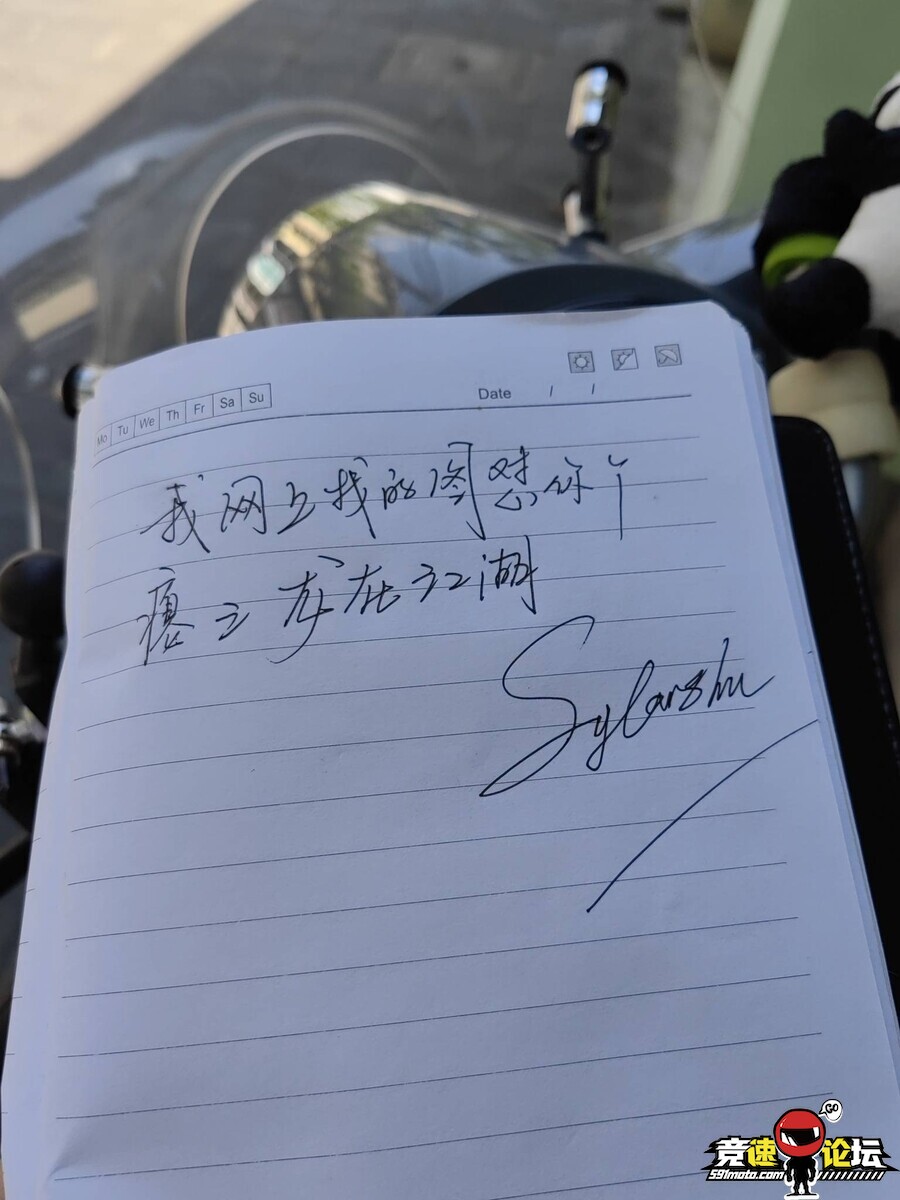 Mo Tu We Th Fr Sa Su
Date / /
我网上找的图怼你丫
龙在江湖
Sylarshu
GO
竞速论坛
591moto.com